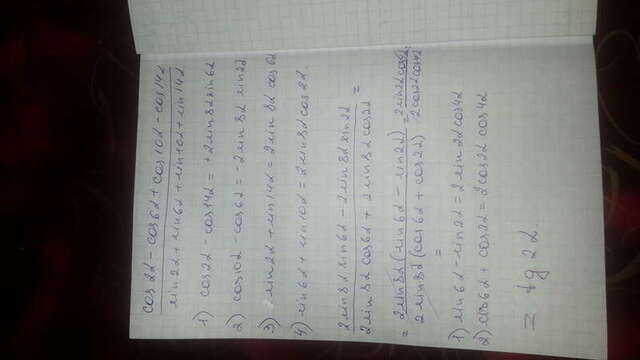 cos 2α - cos 6α + cos 10α - cos 14α
sin 2α + sin 6α + sin 10α + sin 14α
1) cos 2α - cos 14α = +2 sin 8α sin 6α
2) cos 10α - cos 6α = -2 sin 8α sin 2α
3) sin 2α + sin 14α = 2 sin 8α cos 6α
4) sin 6α + sin 10α = 2 sin 8α cos 2α.
2 sin 8α sin 6α - 2 sin 8α sin 2α =
2 sin 8α cos 6α + 2 sin 8α cos 2α
= 2 sin 8α (sin 6α - sin 2α) = 2 sin 2α cos 4α =
2 sin 8α (cos 6α + cos 2α) 2 cos 2α cos 4α
=
1) sin 6α - sin 2α = 2 sin 2α cos 4α
2) cos 6α + cos 2α = 2 cos 2α cos 4α
= tg 2α.